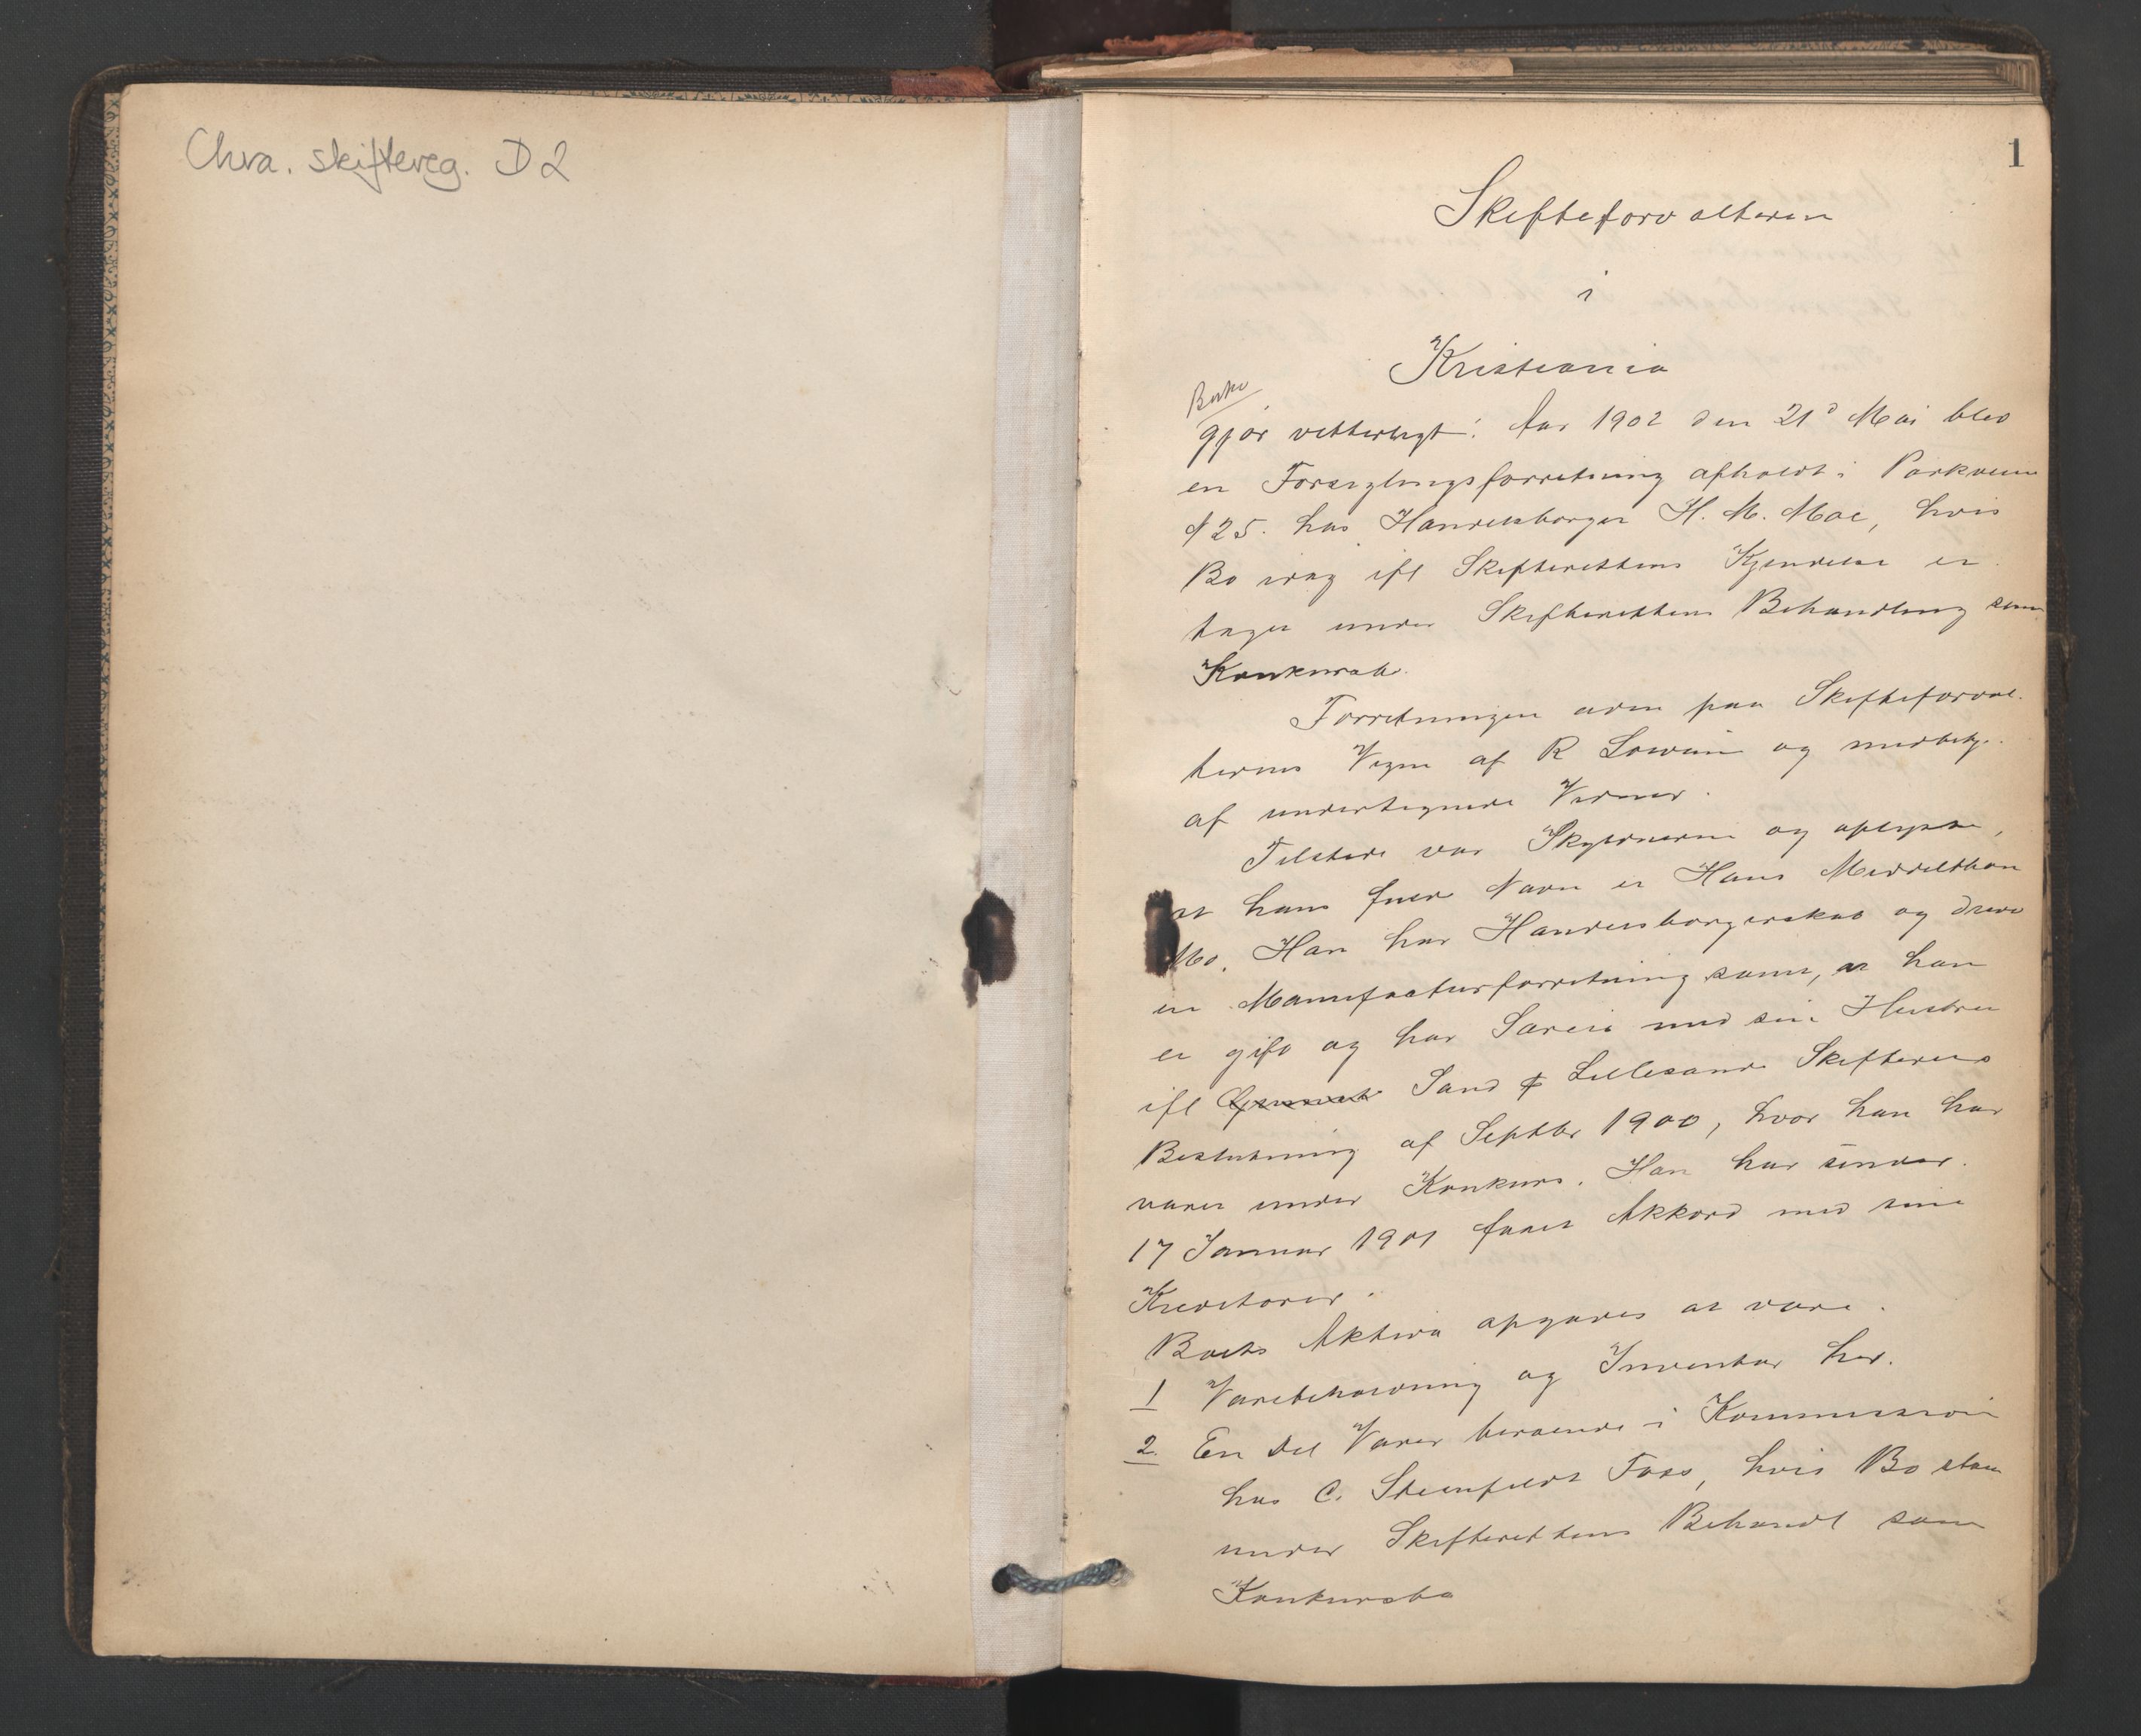 Chra. skiftereg. D 2
1
Skifteforvalteren
i
Kristiania
gjør vitterligt: Aar 1902 den 21d Mai blev
en Forseglingsforretning afholdt i Parkveien
N 25. hos Handelsborger H. M. Moe, hvis
Bo idag ifl Skifterettens Kjendelse er
taget under Skifterettens Behandling som
Konkursbo.
Forretningen adm paa Skifteforval-
terens Vegne af R og medbetj.
af undertegnede Vidner.
Tilstede var Skyldneren og oplyste,
at hans fulde Navn er Hans Middelthon
Mo. Han har Handelsborgerskab og drev
en Manufacturforretning samt, at han
er gift og har Særeie med sin Hustru
ifl Sand & Lillesands Skifterets
Beslutning af Septbr 1900, hvor han har
været under Konkurs. Han har under
17 Januar 1901 faaet Akkord med sine
Kreditorer.
Boets Aktiva opgaves at være.
1 Varebeholdning og Inventar her.
2. En Del Varer beroende i Kommission
hos C. Steenfeldt Foss, hvis Bo staar
under Skifterettens Behandl som
Konkursbo